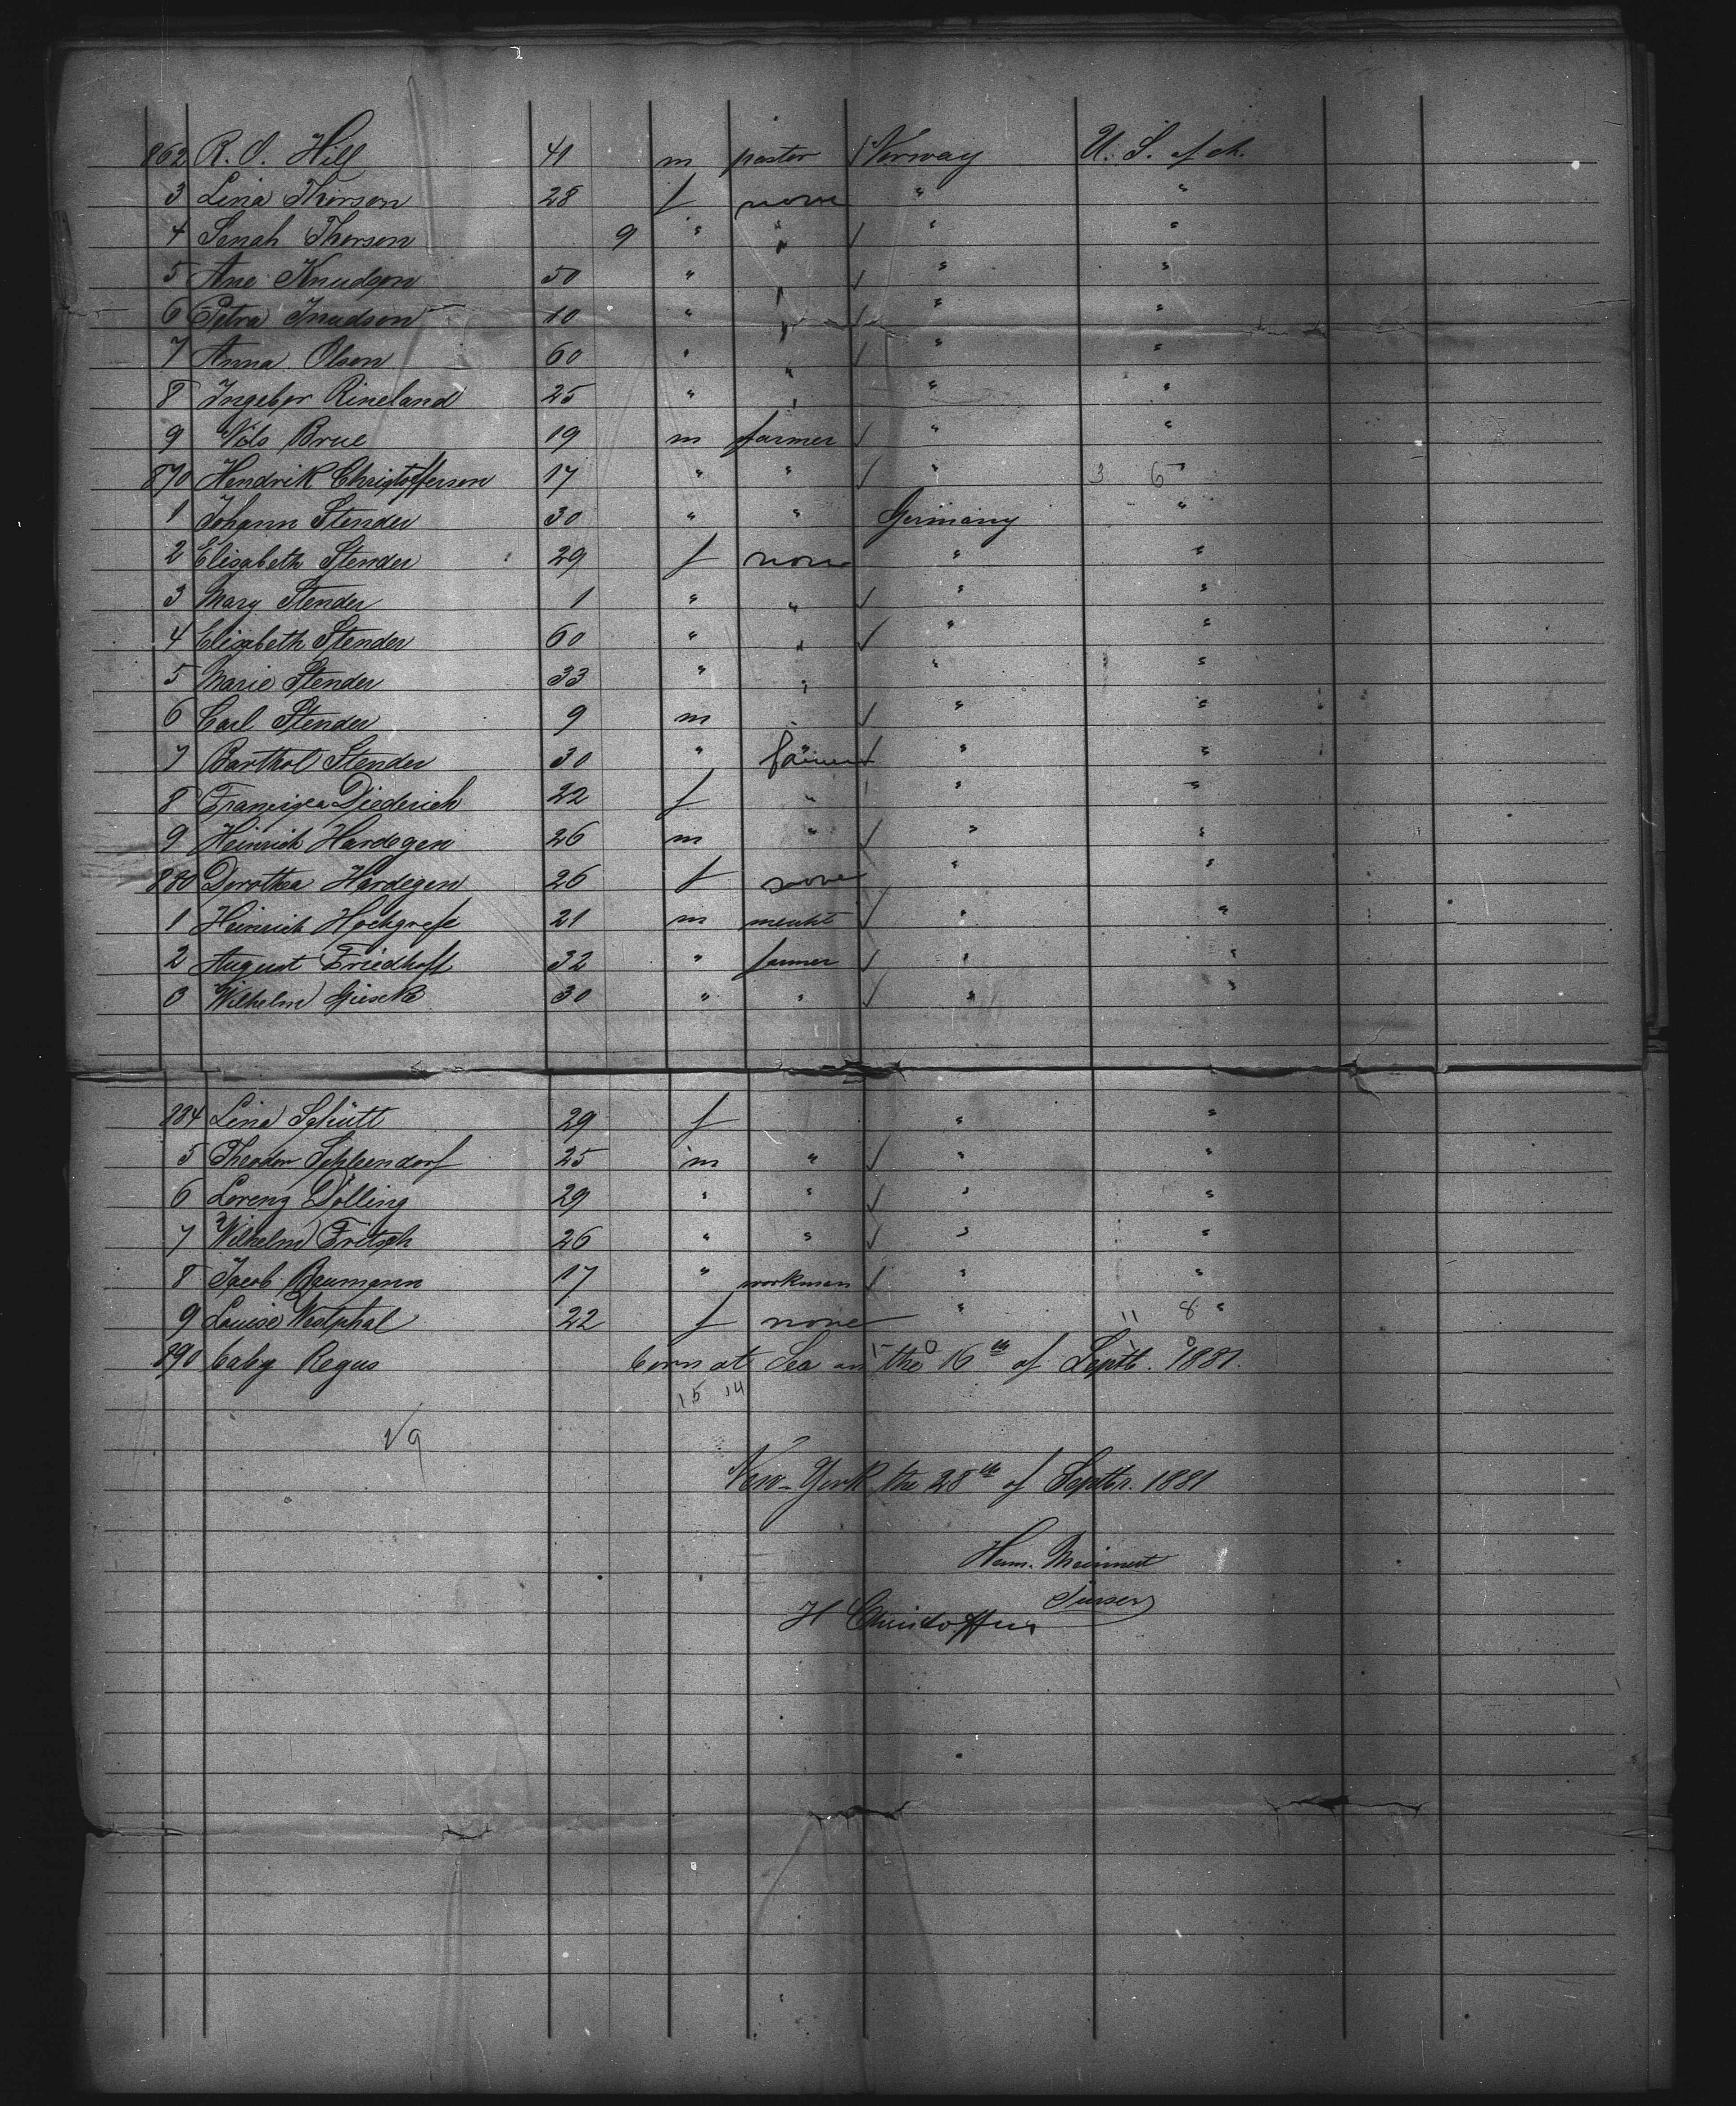 862 R. O. Hill 41 m pastor Norway U. S. of A.
3 Lina Thorson 28 f none " "
4 Senah Thorson 9 " " " "
5 Ane Knudson 50 " " " "
6 Petra Knudson 10 " " " "
7 Anna Olson 60 " " " "
8 Ingebor Rineland 25 " " " "
9 Nils Brue 19 m farmer " "
870 Hendrik Christofferson 17 " " " 3 6
1 Johann Stender 30 " " Germany "
2 Elisabeth Stender 29 f none " "
3 Mary Stender 1 " " " "
4 Elisabeth Stender 60 " " " "
5 Marie Stender 33 " " " "
6 Carl Stender 9 m " "
7 Barthol Stender 30 " farmer " "
8 Francisca Diederich 22 f " " "
9 Heinrich Hardegen 26 m " " "
880 Dorothea Hardegen 26 f none " "
1 Heinrich Hochgrefe 21 m mercht " "
2 August Friedhoff 32 " farmer " "
3 Wilhelm Giescke 30 " " " "
884 Lina Schütt 29 f " "
5 Theodor Schleendorf 25 m " " "
6 Lorenz Dölling 29 " " " "
7 Wilhelm Fritsch 26 " " " "
8 Jacob Baumann 17 " workman " "
9 Louise Westphal 22 f none " 11 8 "
890 baby Regus born at Sea on the 16th of Septb. 1881.
15 14
29
New-York the 28th of Septbr. 1881
Herm. Meinnert
Purser
H Christoffers